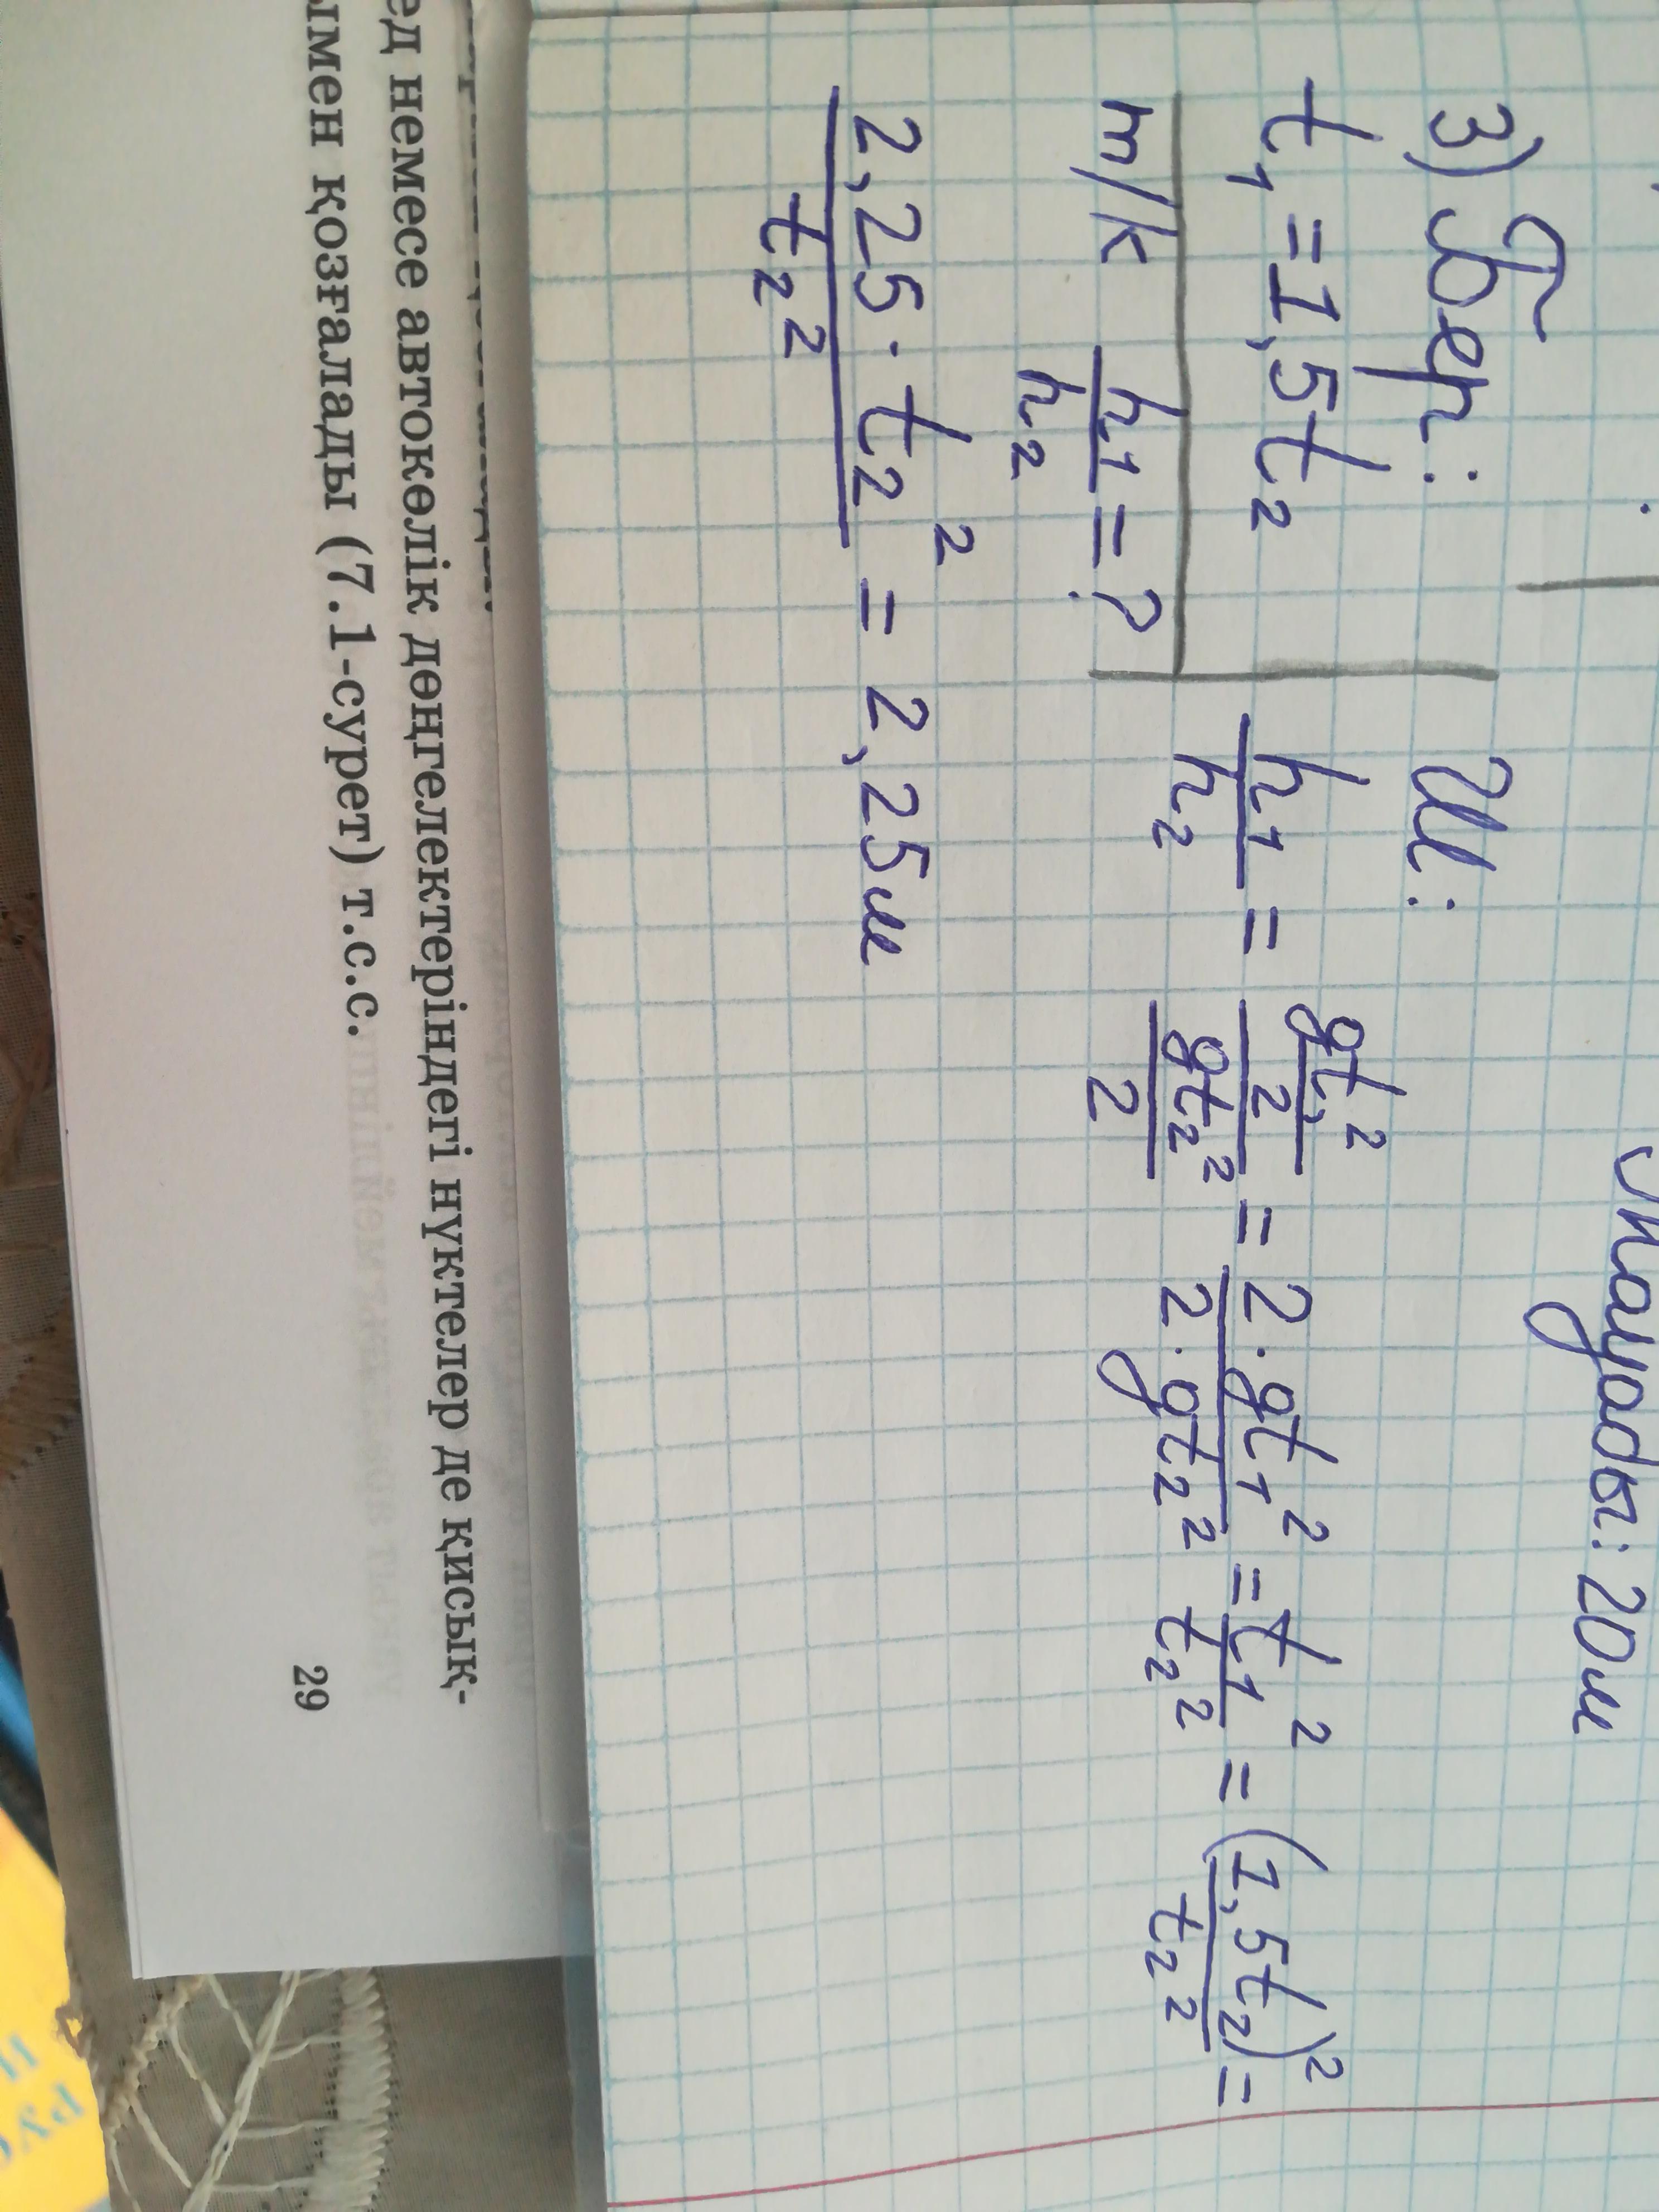 Тауады: 20м
3) Бер: Ш:
t₁ = 1,5t₂
h₁/h₂ = (gt₁²/2)/(gt₂²/2) = 2·gt₁²/2·gt₂² = t₁²/t₂² = (1,5t₂)²/t₂² =
т/к h₁/h₂ = ?
2,25·t₂²/t₂² = 2,25м
ед немесе автокөлік дөңгелектеріндегі нүктелер де қисық-
ымен қозғалады (7.1-сурет) т.с.с.
29